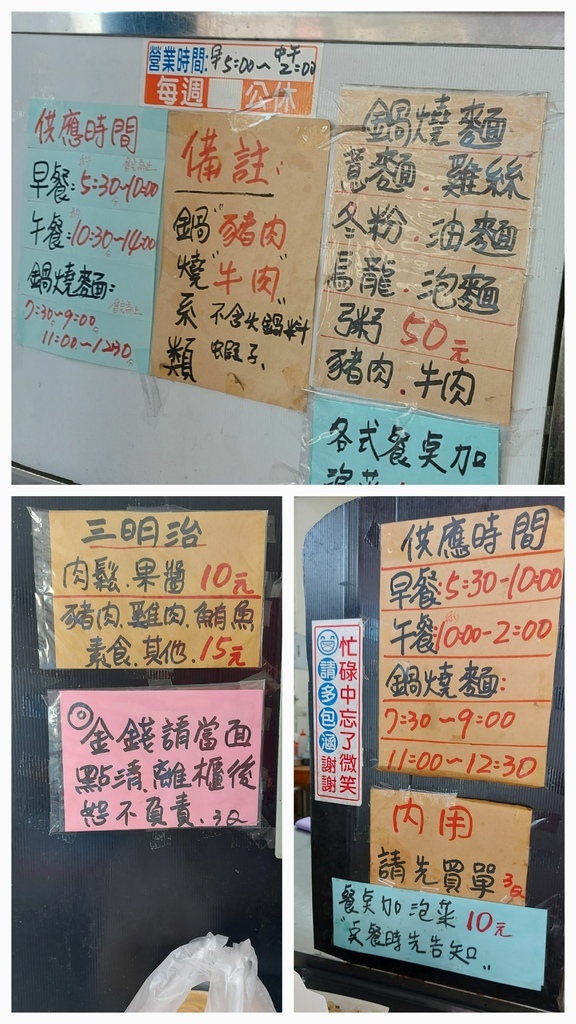 營業時間:早5:00~中午2:00
每週 公休
供應時間
早餐:約5:30~10:00
午餐:約10:30~14:00
鍋燒麵:
7:30~9:00
11:00~12:30
備註:
鍋燒系類
"豬肉"
"牛肉"
不含火鍋料
蝦子、
鍋燒麵
意麵.雞絲
冬粉.油麵
烏龍.泡麵
粥 50元
豬肉.牛肉
各式餐桌加
泡菜
三明治
肉鬆.果醬 10元
豬肉.雞肉.鮪魚
素食.其他.15元
金錢請當面
點清.離櫃後
恕不負責.
忙碌中忘了微笑
請多包涵 謝謝
供應時間
早餐:5:30-10:00
午餐:約10:00-2:00
鍋燒麵:
7:30~9:00
11:00-12:30
內用
請先買單
餐桌加泡菜10元
"桌餐時先告知"